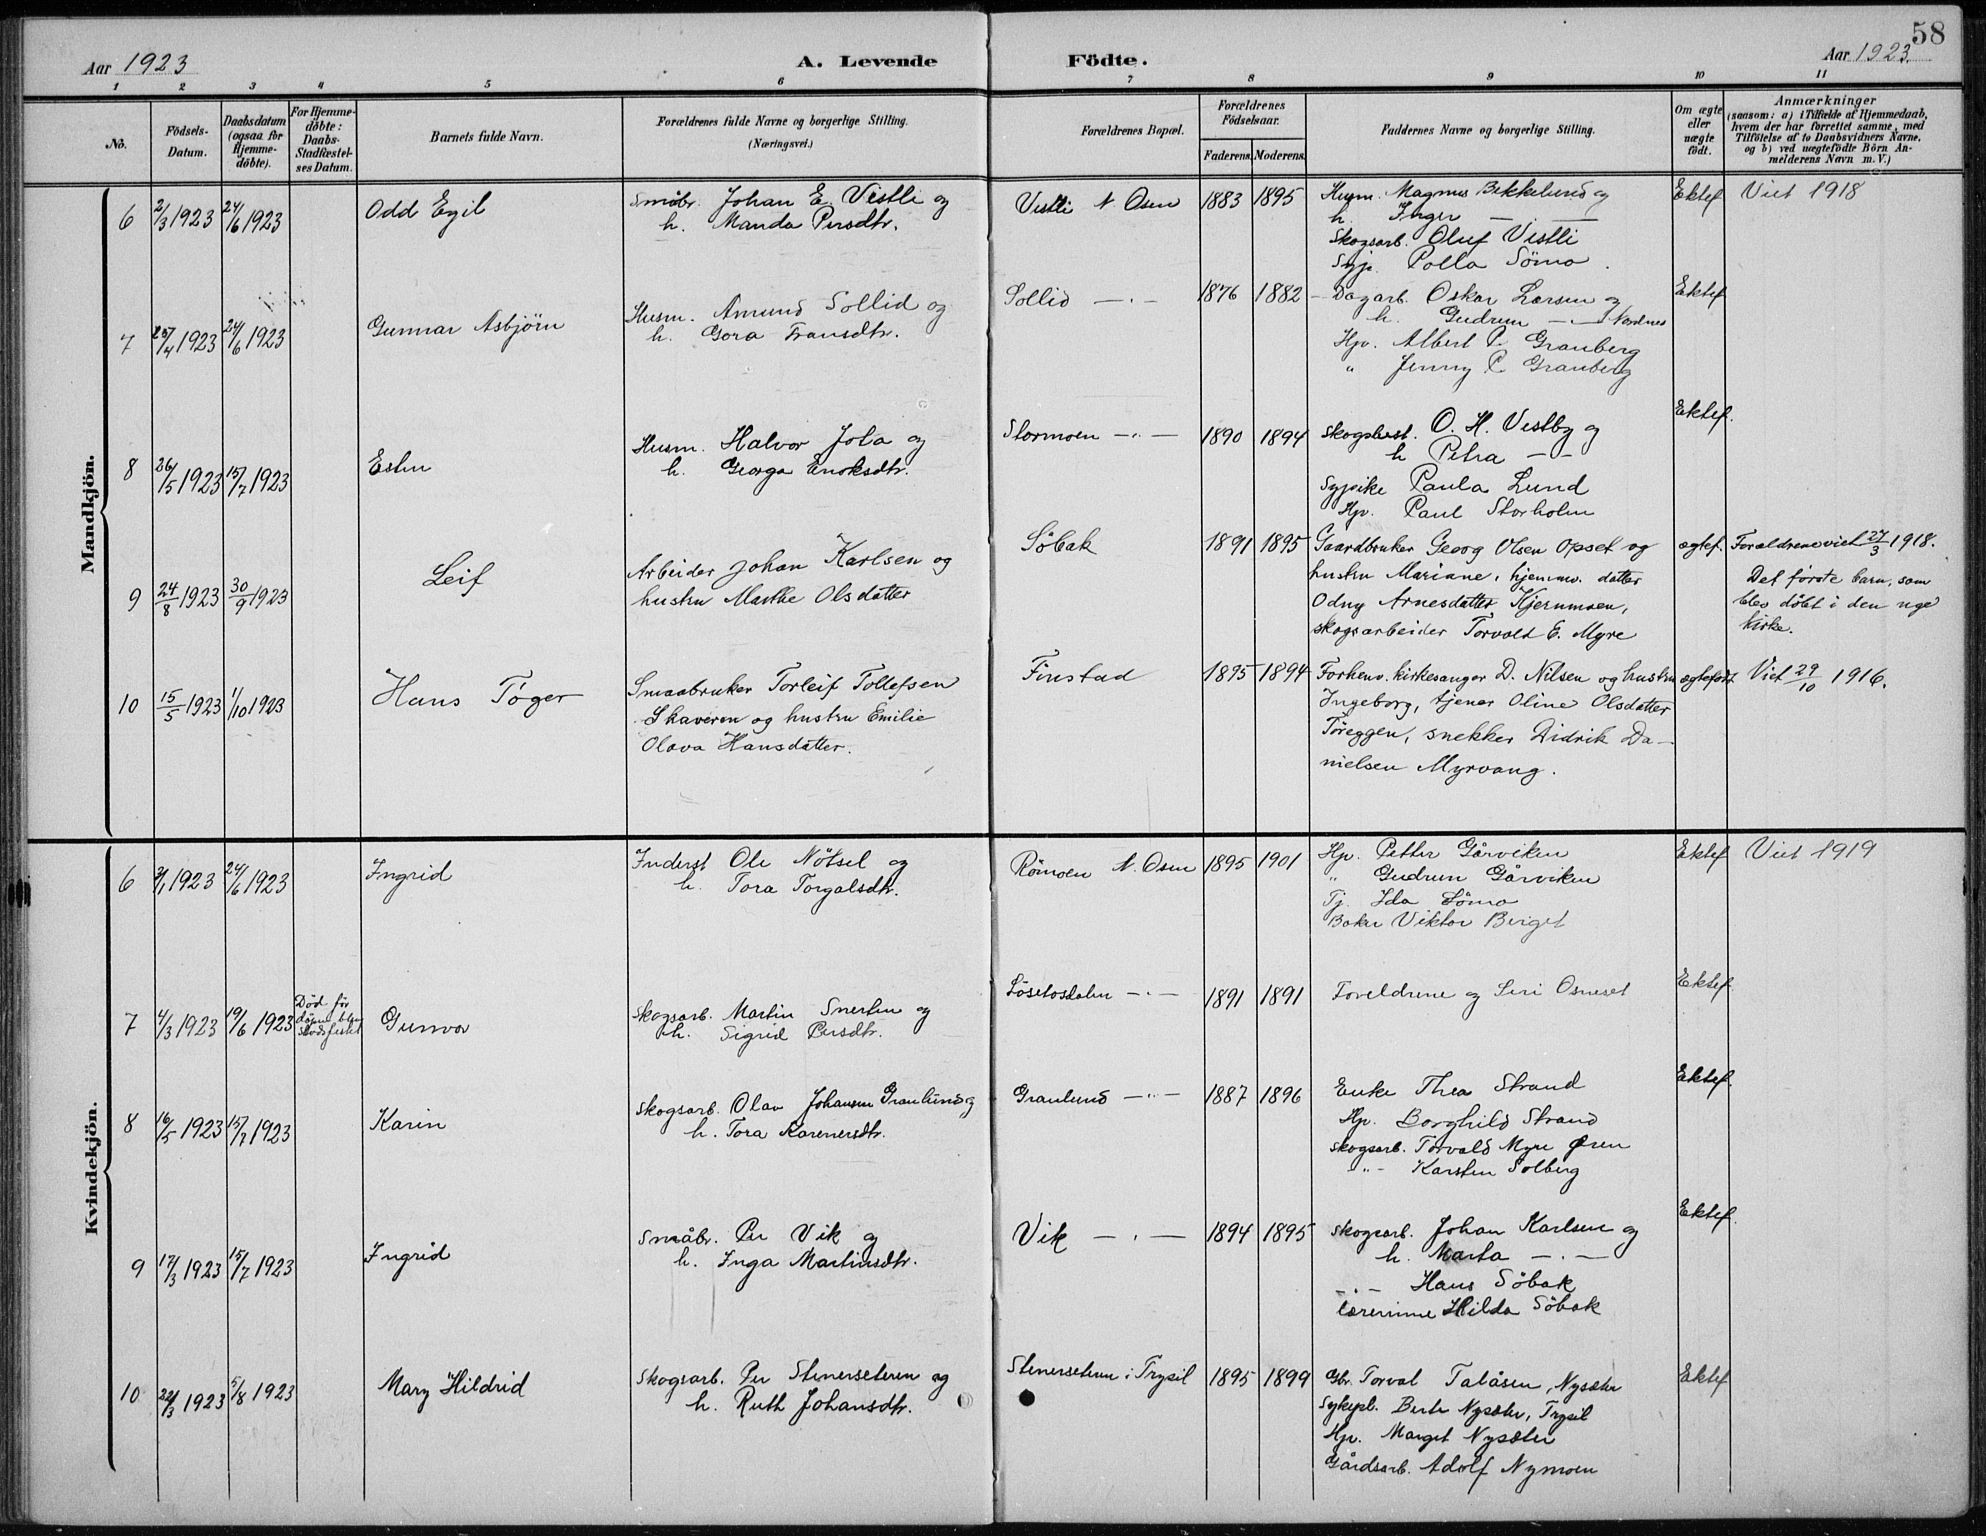 58
Aar 1923
A. Levende Födte.
Aar 1923.
1 2 3 4 5 6 7 8 9 10 11
No.
Födsels-Datum.
Daabsdatum (ogsaa for Hjemme-döbte).
For Hjemme-döbte: Daabs-Stadfæstel-ses Datum.
Barnets fulde Navn.
Forældrenes fulde Navne og borgerlige Stilling.
(Næringsvei.)
Forældrenes Bopæl.
Forældrenes Födselsaar.
Faderens. Moderens.
Faddernes Navne og borgerlige Stilling.
Om ægte eller uægte födt.
Anmærkninger
(saasom: a) i Tilfælde af Hjemmedaab, hvem der har forrettet samme, med Tilföielse af to Daabsvidners Navne, og b) ved uægtefödte Börn An-melderens Navn m. V.)
Mandkjön.
6 2/3 1923 24/6 1923 Odd Egil
Småbr. Johan E. Vistli og
h. Manda Persdtr.
Vistli N Osen 1883 1895
Husm. Magnus Bekkelund og
h. Inger — —
Skogsarb. Oluf Vistli
Syp. Polla Sömo.
Ektef. Viet 1918
7 25/4 1923 24/6 1923 Gunnar Asbjörn
Husm. Amund Sollid og
h. Gora Fransdtr.
Sollid —·— 1876 1882
Dagarb. Oskar Larsen og
h. Gudrun —·— Nordnes
Hpv. Albert P. Granberg
" Jenny P. Granberg
Ektef
8 26/5 1923 15/7 1923 Esten
Husm. Halvor Jota og
h. Georga Enoksdtr.
Stormoen —·— 1890 1894
Skogsbest. O. H. Vestby og
h Petra — —
Sypike Paula Lund
Hpv. Paul Storholm
Ektef.
9 24/8 1923 30/9 1923 Leif
Arbeider Johan Karlsen og
hustru Marthe Olsdatter
Söbak 1891 1895
Gaardbruker Georg Olsen Opset og
hustru Mariane, hjemmv. datter
Odny Arnesdatter Kjernmoen,
skogsarbeider Torvald E. Myre
ægtef. Forældrene viet 27/3 1918.
Det første barn, som
blev døbt i den nye
kirke.
10 15/5 1923 1/10 1923 Hans Tøger
Smaabruker Torleif Tollefsen
Skaveren og hustru Emilie
Olava Hansdatter.
Finstad 1895 1894
Forhenv. kirkesanger D. Nilsen og hustru
Ingeborg, tjener Oline Olsdatter
Tøreggen, snekker Didrik Da-
nielsen Myrvang.
ægtefødt Viet 29/10 1916.
Kvindekjön.
6 9/1 1923 24/6 1923 Ingrid
Inderst Ole Nötsel og
h. Tora Torgalsdtr.
Römoen N. Osen 1895 1901
Hp. Petter Gårviken
" Gudrun Gårviken
Tj. Ida Sömo
Baker Viktor Berget
Ektef Viet 1919
7 4/3 1923 19/6 1923 Död för Gunvor
Skogsarb. Martin Snerten og
h. Sigrid Persdtr.
Lösetosdalen —·— 1891 1891
Foreldrene og Siri Osneset
Ektef
8 16/5 1923 15/7 1923 Karin
Skogsarb. Olav Johansen Granlund og
h. Tora Karenersdtr.
Granlund —·— 1887 1896
Enke Thea Strand
Hp. Borghild Strand
Skogsarb. Torvald Myre Øren
—"— Karsten Solberg
Ektef.
9 17/3 1923 15/7 1923 Ingrid
Småbr. Per Vik og
h. Inga Martinsdtr.
Vik —·— 1894 1895
Skogsarb. Johan Karlsen og
h. Marta —·—
—·— Hans Söbak
Lærerinne Hilda Söbak
Ektef.
10 22/3 1923 5/8 1923 Mary Hildrid
Skogsarb. Per Stenerseteren og
h. Ruth Johansdtr.
Stenerseteren i Trysil 1895 1899
Gbr. Torval Talåsen, Nysæter
Sykepl. Berte Nysæter, Trysil
Hpv. Marget Nysæter
Gårdsarb. Adolf Nymoen
Ektef